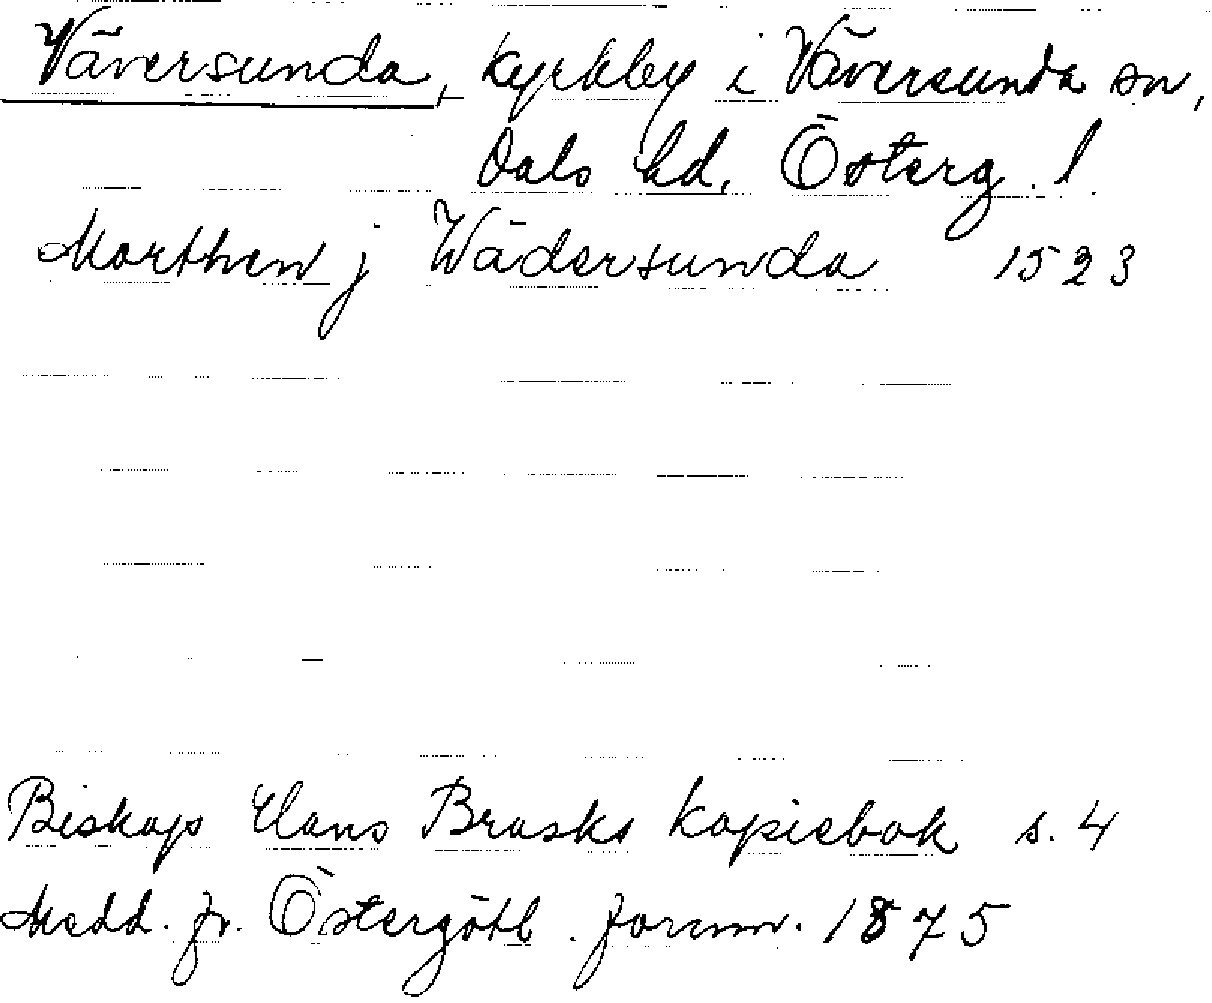 Väversunda, kyrkby i Väversunda sn,
Dals hd, Österg. l.
Marthen j Wädersunda 1523
Biskop Hans Brasks kopiebok s. 4
Medd. fr. Östergötl. fornm. 1875